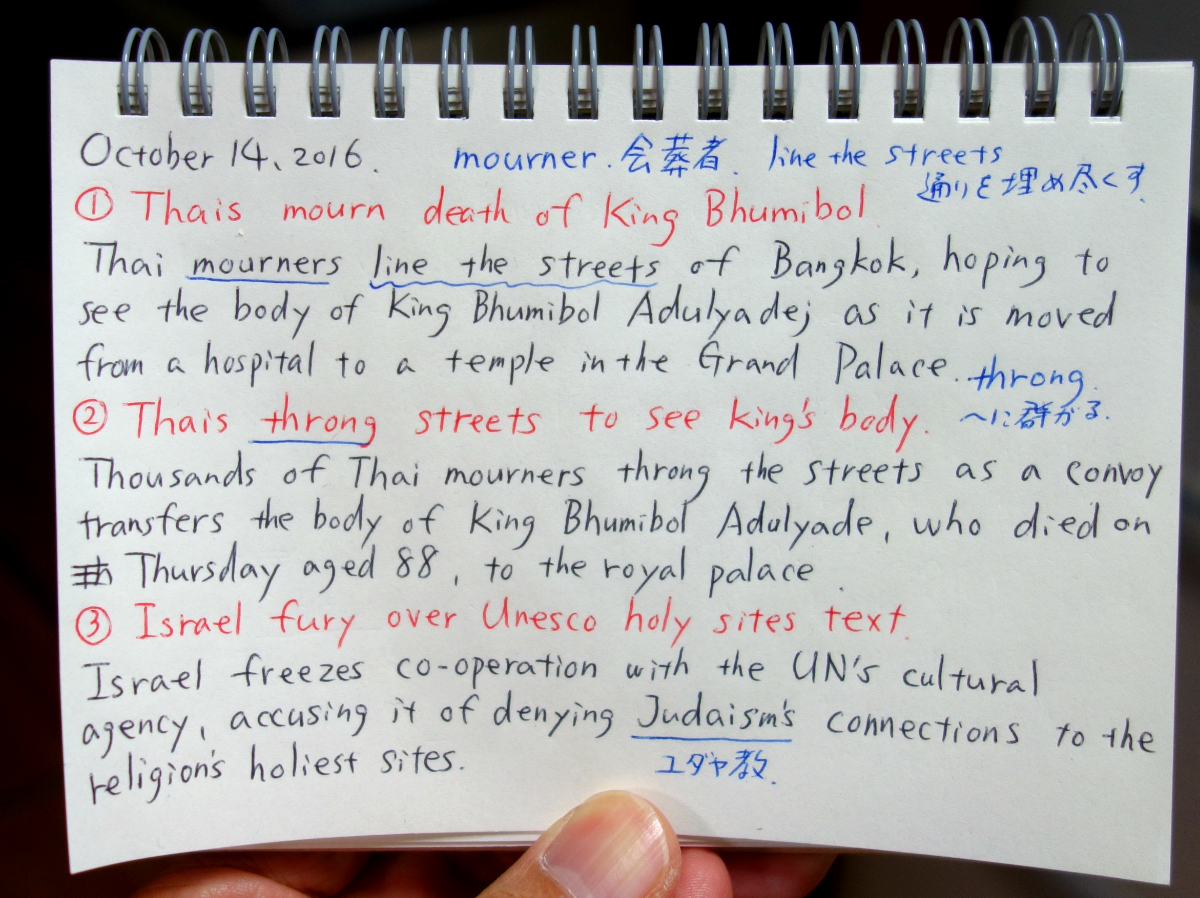 October 14、2016. mourner. 会葬者. line the streets
通りを埋め尽くす.
① Thais mourn death of King Bhumibol
Thai mourners line the streets of Bangkok, hoping to
see the body of King Bhumibol Adulyadej as it is moved
from a hospital to a temple in the Grand Palace. throng.
② Thais throng streets to see king's body. 〜に群がる.
Thousands of Thai mourners throng the streets as a convoy
transfers the body of King Bhumibol Adulyade, who died on
Thursday aged 88, to the royal palace.
③ Israel fury over Unesco holy sites text.
Israel freezes co-operation with the UN's cultural
agency, accusing it of denying Judaism's connections to the
religion's holiest sites. ユダヤ教.